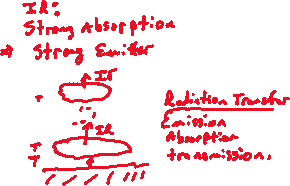 IR:
Strong Absorption
⇒ Strong Emitter
IR
T
IR
T
T
Radiation Transfer
Emission
Absorption
transmission.